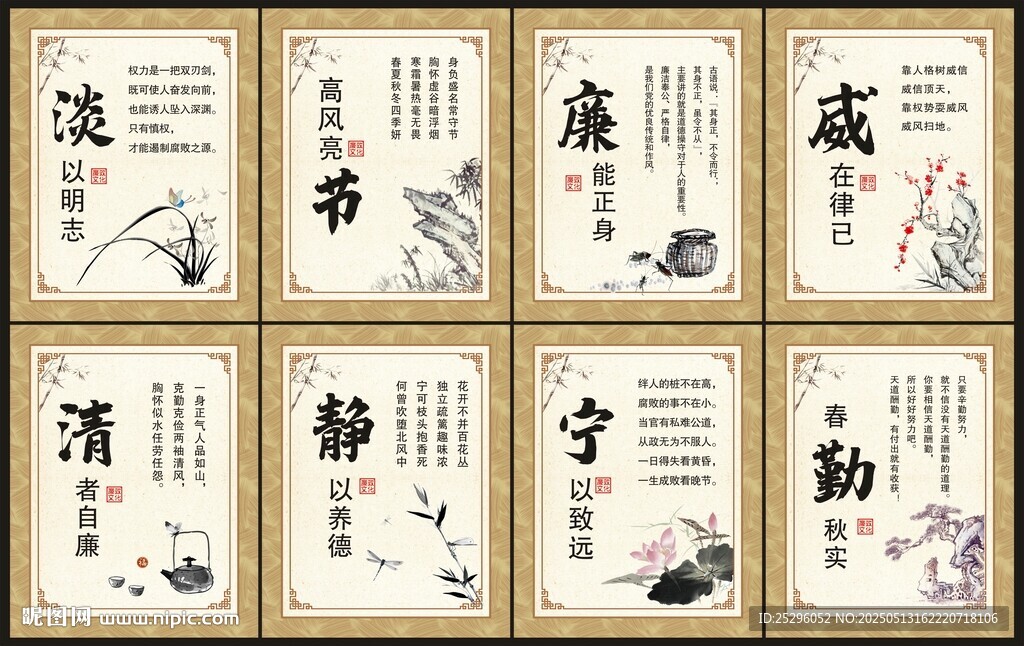 淡
以明志
权力是一把双刃剑，
既可使人奋发向前，
也能诱人坠入深渊。
只有慎权，
才能遏制腐败之源。
廉政文化
高风亮
节
身负盛名常守节
胸怀虚谷暗浮烟
寒霜暑热毫无畏
春夏秋冬四季妍
廉政文化
廉
能正身
古语说：“其身正，不令而行；
其身不正，虽令不从”，
主要讲的就是道德操守对于人的重要性。
廉洁奉公、严格自律，
是我们党的优良传统和作风。
廉政文化
威
在律己
靠人格树威信
威信顶天，
靠权势耍威风
威风扫地。
廉政文化
清
者自廉
一身正气人品如山，
克勤克俭两袖清风，
胸怀似水任劳任怨。
廉政文化
福
静
以养德
花开不并百花丛
独立疏篱趣味浓
宁可枝头抱香死
何曾吹堕北风中
廉政文化
宁
以致远
绊人的桩不在高，
腐败的事不在小。
当官有私难公道，
从政无为不服人。
一日得失看黄昏，
一生成败看晚节。
廉政文化
春
勤
秋实
只要辛勤努力，
就不信没有天道酬勤的道理。
你要相信天道酬勤，
所以好好努力吧。
天道酬勤，有付出就有收获！
廉政文化
昵图网 www.nipic.com
ID:25296052 NO:20250513162220718106